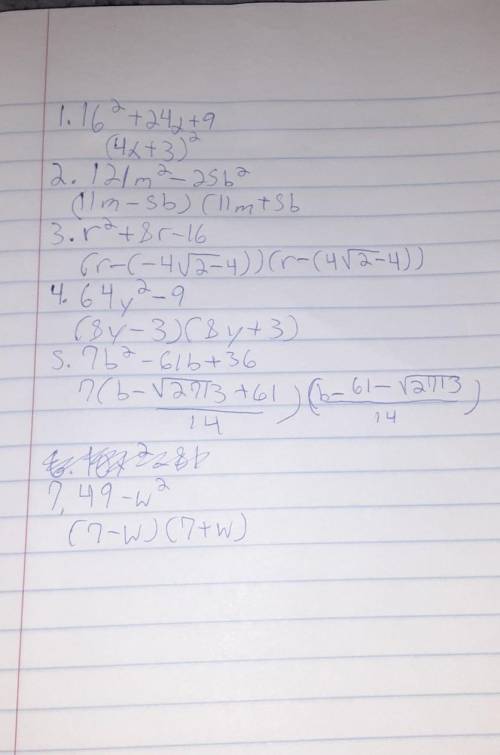 1. 16² + 24x + 9
(4x + 3)²
2. 121m² - 25b²
(11m - 5b) (11m + 5b
3. r² + 8r - 16
(r - (-4√2 - 4)) (r - (4√2 - 4))
4. 64y² - 9
(8y - 3) (8y + 3)
5. 7b² - 61b + 36
7(b - (√2713 + 61)/14) (b - (61 - √2713)/14)
7. 49 - w²
(7 - w) (7 + w)